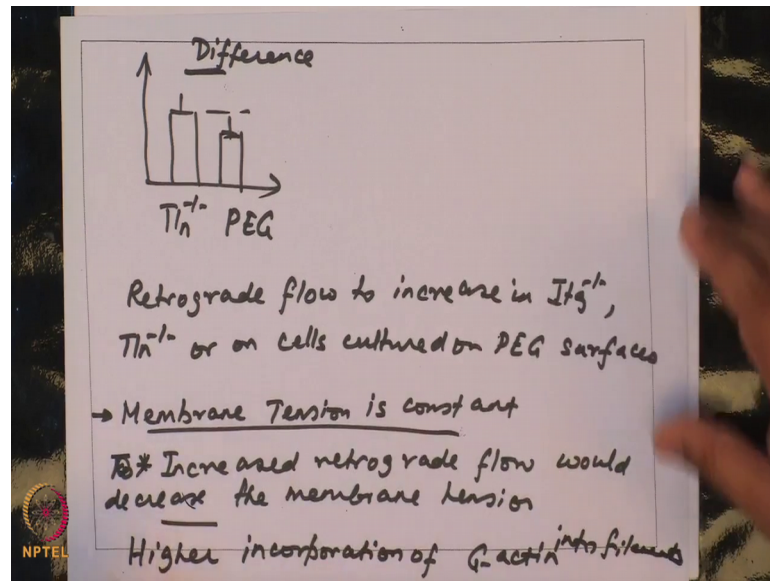 Difference
Tln-/- PEG
Retrograde flow to increase in Itg-/-,
Tln-/- or on cells cultured on PEG surfaces
→ Membrane Tension is constant
* Increased retrograde flow would
decrease the membrane tension
Higher incorporation of G-actin into filaments
NPTEL